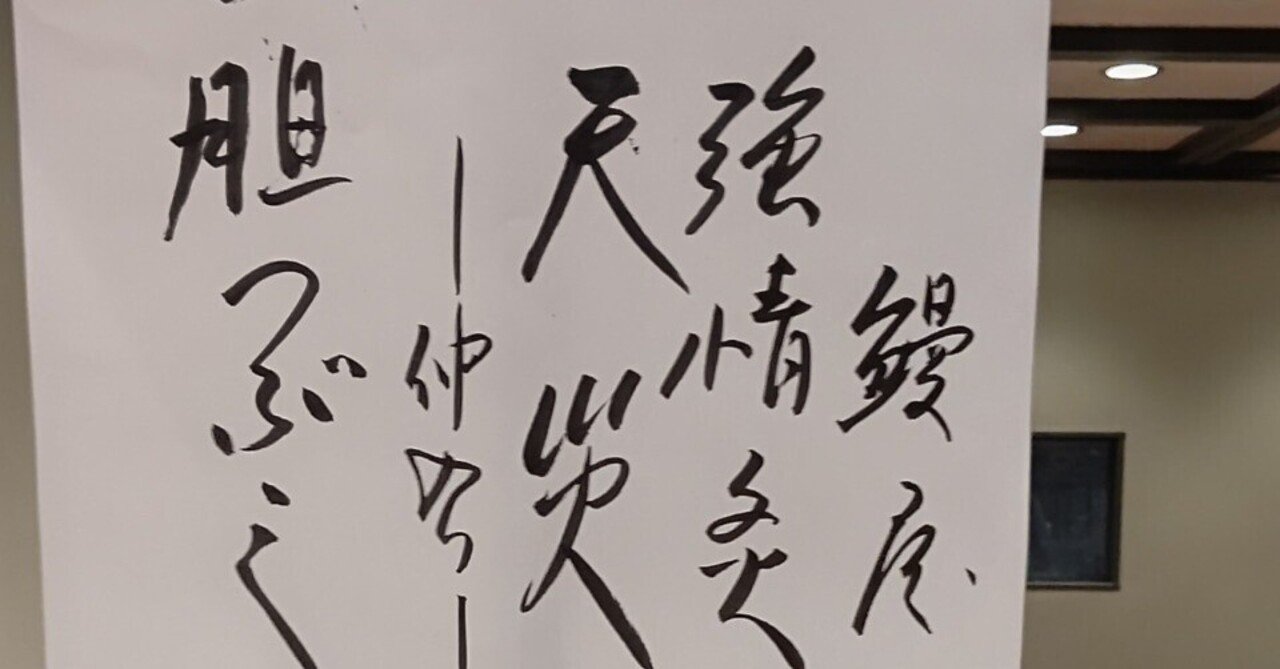 鰻屋
強情灸
天災
｜仲入｜
胆つぶし